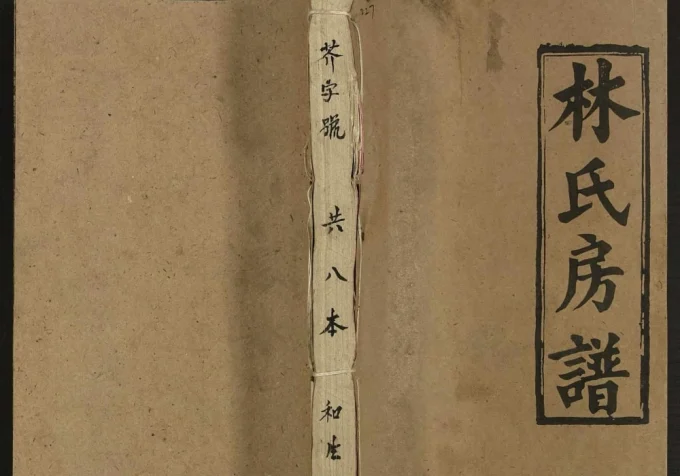 林氏房譜
芥字號 共八本 和生
227